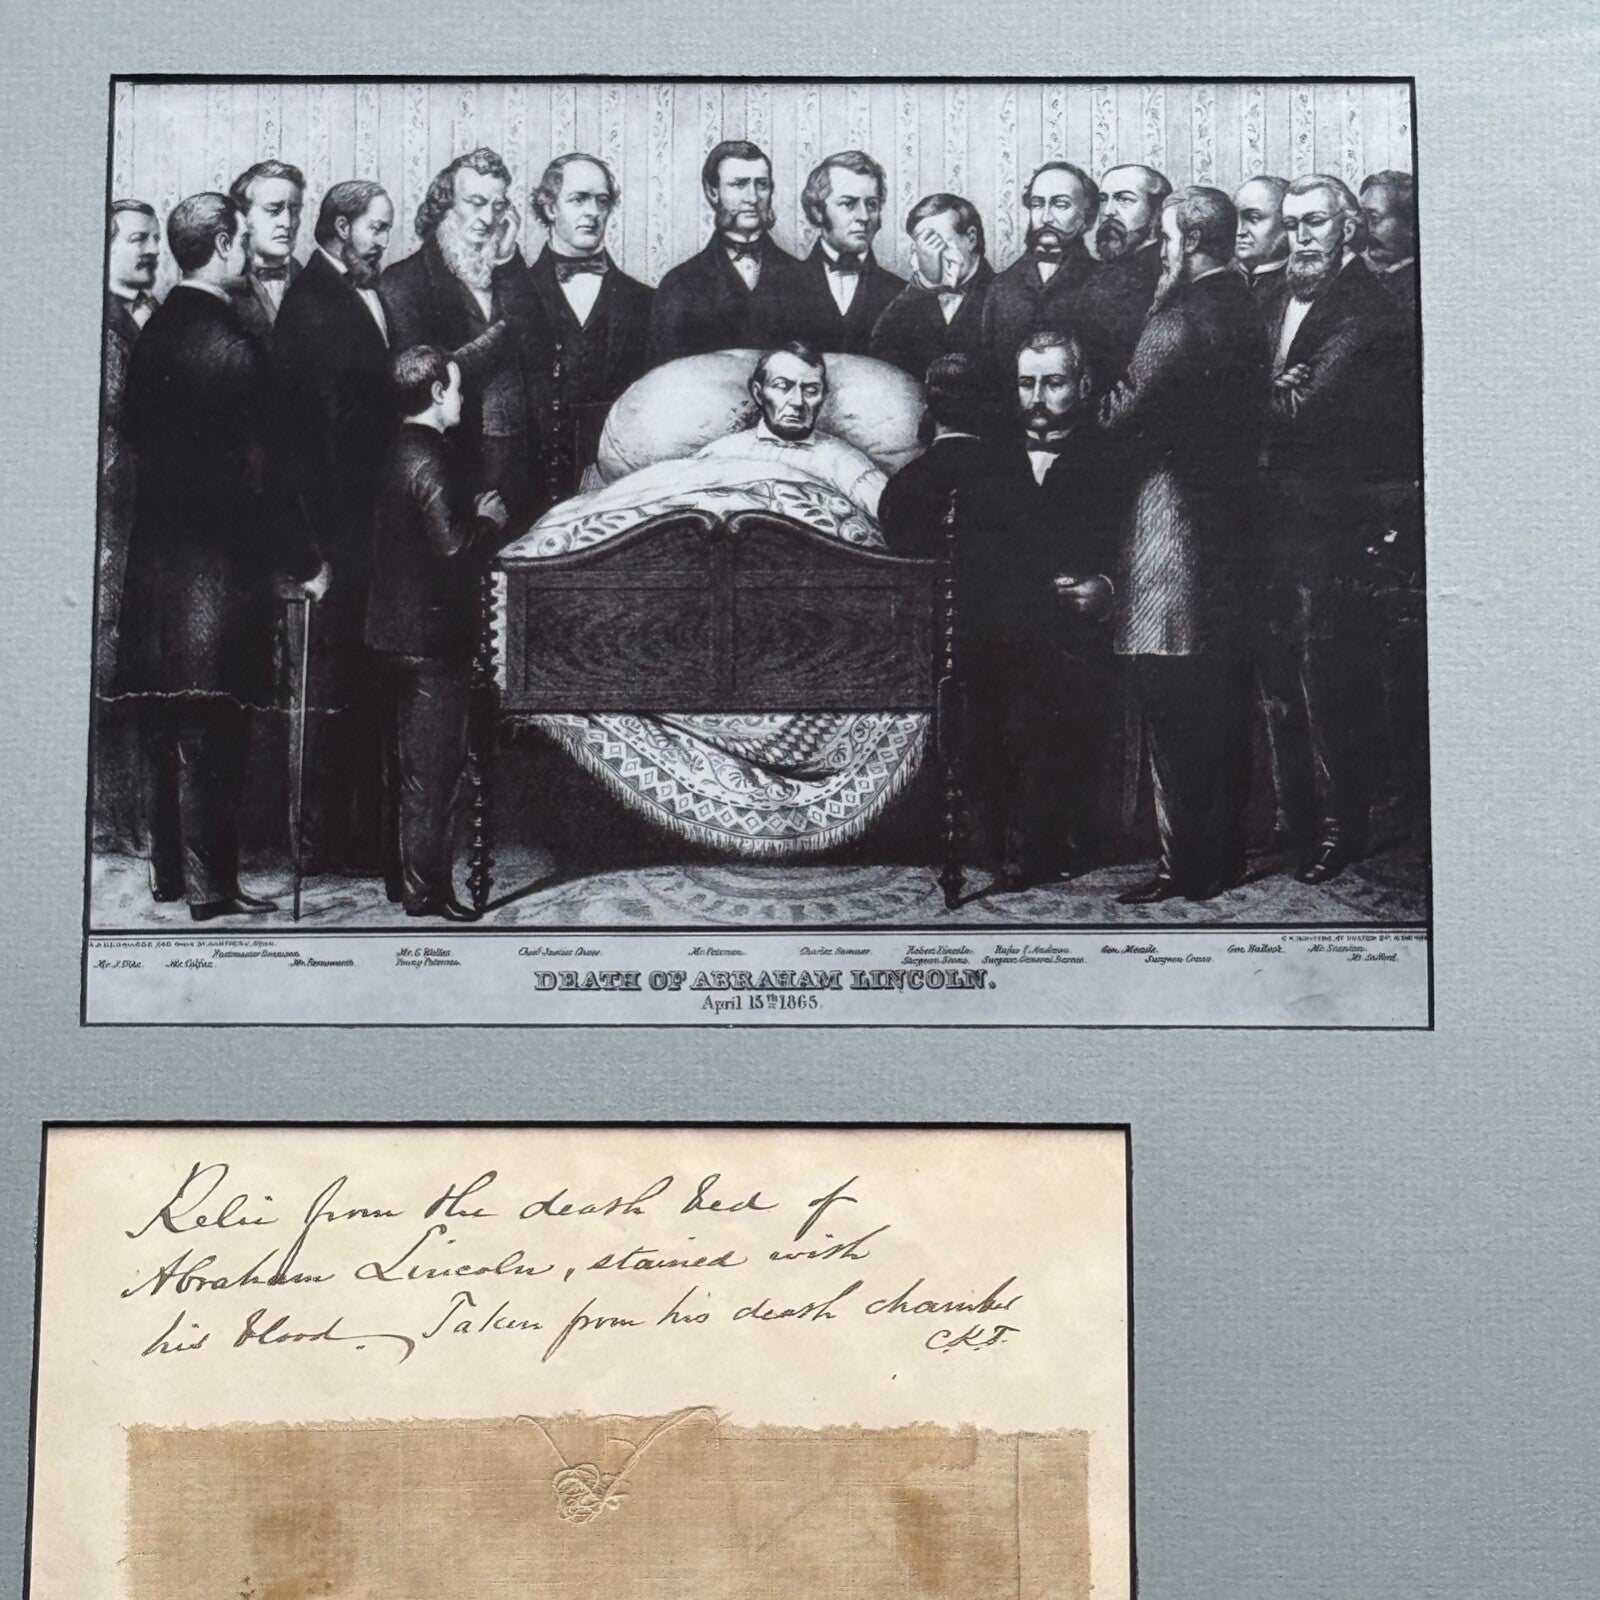 Postmaster Dennison
Mr. G. Welles
Chief Justice Chase
Mr. Petersen
Charles Sumner
Robert Lincoln
Rufus F. Andrews
Gen. Meade
Gen. Halleck
Mr. Stanton
Mr. Colfax
Mr. Farnsworth
Young Petersen
Surgeon General Barnes
Surgeon Crane
DEATH OF ABRAHAM LINCOLN.
April 15th 1865.
Relic from the death bed of
Abraham Lincoln, stained with
his blood. Taken from his death chamber
C.K.T.